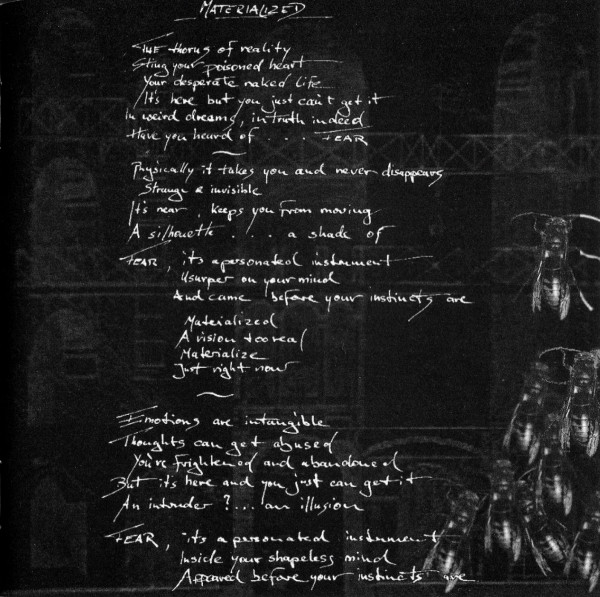 MATERIALIZED
THE thorns of reality
Sting your poisoned heart
Your desperate naked life
It's here but you just can't get it
In weird dreams, in truth indeed
Have you heard of . . . FEAR
Physically it takes you and never disappears
Strange & invisible
It's near, keeps you from moving
A silhouette . . . a shade of
FEAR, it's a personated instrument
Usurper on your mind
And came before your instincts are
Materialized
A vision too real
Materialize
Just right now
Emotions are intangible
Thoughts can get abused
You're frightened and abandoned
But it's here and you just can get it
An intruder ?... an illusion
FEAR, it's a personated instrument
Inside your shapeless mind
Appeared before your instincts are